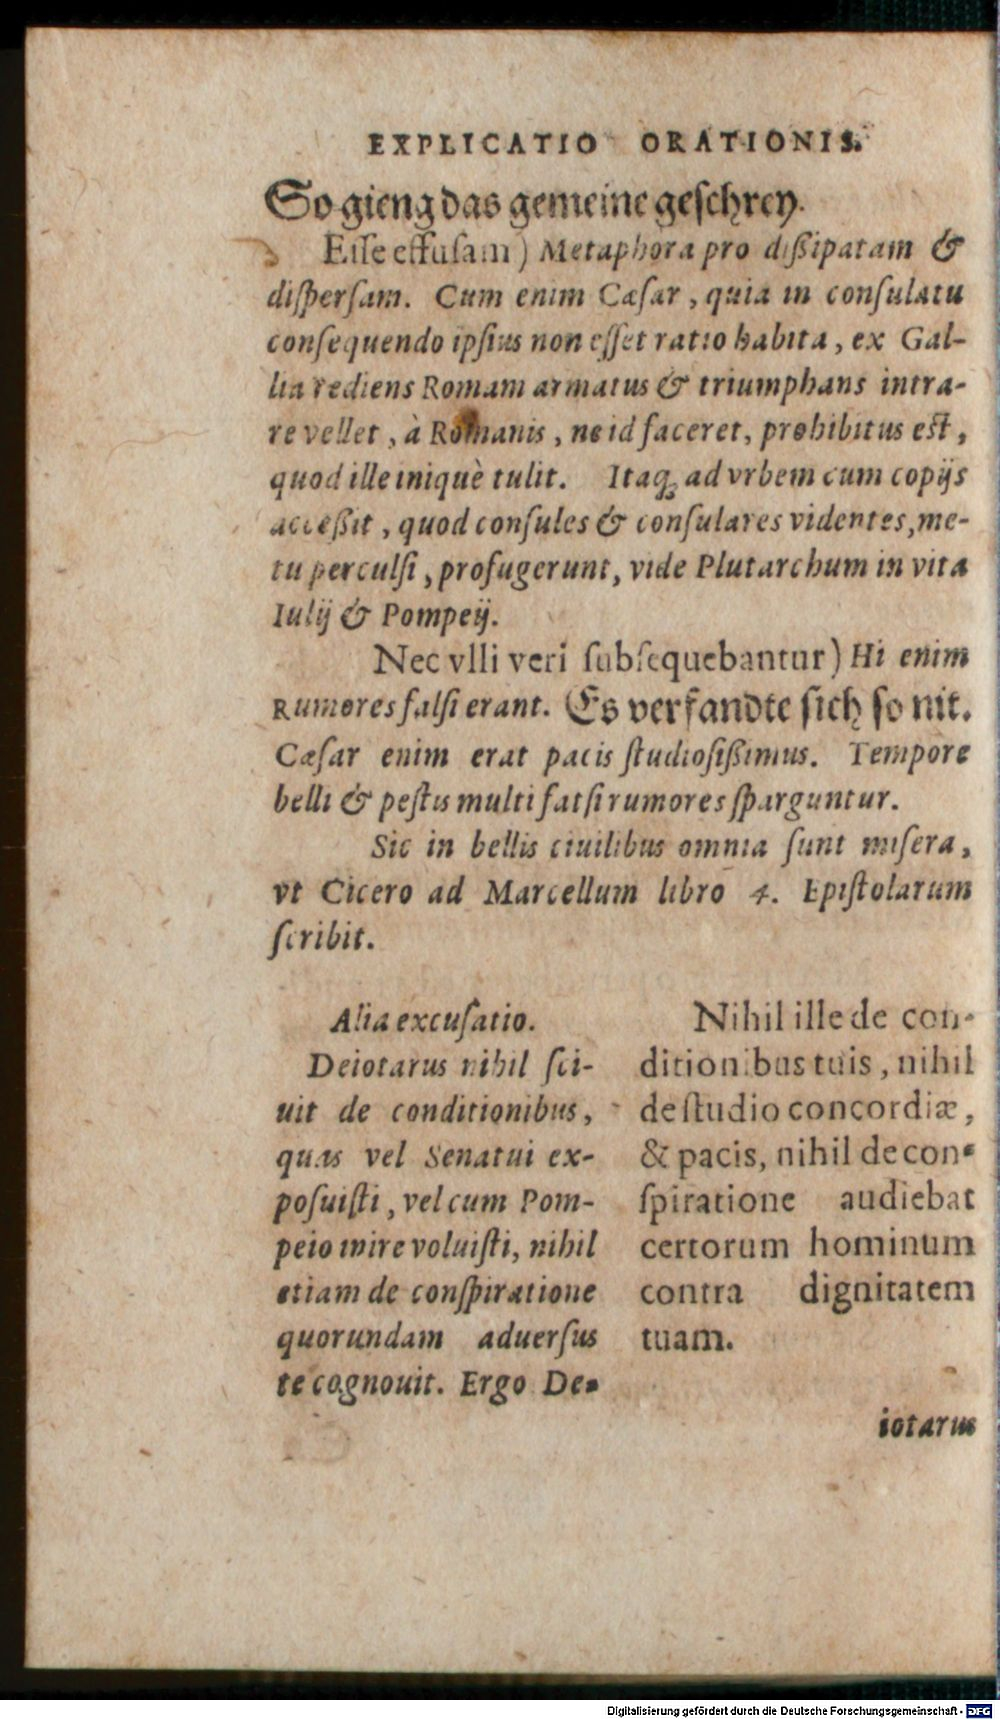 EXPLICATIO ORATIONIS.
So gieng das gemeine geſchrey.
Eſſe effuſam) Metaphora pro diſſipatam &
diſperſam. Cum enim Cæſar, quia in conſulatu
conſequendo ipſius non eſſet ratio habita, ex Gal-
lia rediens Romam armatus & triumphans intra-
re vellet, à Romanis, ne id faceret, prohibitus eſt,
quod ille iniquè tulit. Itaq; ad vrbem cum copijs
acceßit, quod conſules & conſulares videntes, me-
tu perculſi, profugerunt, vide Plutarchum in vita
Iulij & Pompeij.
Nec vlli veri ſubſequebantur) Hi enim
Rumores falſi erant. Es verfandte ſich ſo nit.
Cæſar enim erat pacis ſtudioſißimus. Tempore
belli & peſtis multi fatſi rumores ſparguntur.
Sic in bellis ciuilibus omnia ſunt miſera,
vt Cicero ad Marcellum libro 4. Epiſtolarum
ſcribit.
Alia excuſatio.
Deiotarus nihil ſci-
uit de conditionibus,
quas vel Senatui ex-
poſuiſti, vel cum Pom-
peio inire voluiſti, nihil
etiam de conſpiratione
quorundam aduerſus
te cognouit. Ergo De-
Nihil ille de con-
ditionibus tuis, nihil
de ſtudio concordiæ,
& pacis, nihil de con-
ſpiratione audiebat
certorum hominum
contra dignitatem
tuam.
iotarus
Digitalisierung gefördert durch die Deutsche Forschungsgemeinschaft - DFG